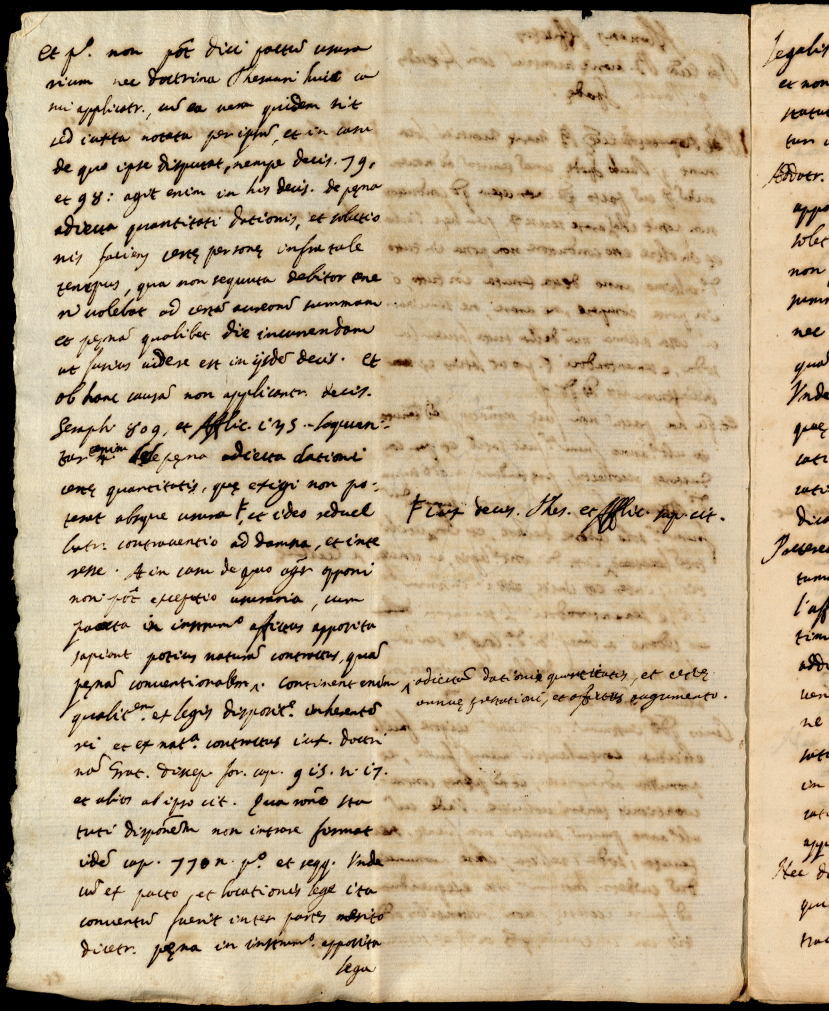 et p.º non põt dici pactũ usura
rium nec doctrina Thesauri huic ca
sui applicatr., cũ ea vera quidem sit
sed iuxta notata per ipsũ, et in casu
de quo ipse disputat, nempe decis. 79,
et 98: agit enim in his decis. de pęna
adiecta quantitati dationis, et solutio
nis faciens certę personę infra tale
tempus, qua non sequuta debitor tene
ri volebat ad certã aureorũ summam
et pęnã qualibet die incurrendam
ut fusius videre est in ijsdẽ decis. et
ob hanc causã non applicantr. decis.
Seraph. 809, et Afflic. 175. loquun-
tur enim de pęna adiecta dationi
certę quantitatis, quę exigi non po-
terat absque usura, et ideo reduci
batr. contraventio ad damna, et inte
resse. At in casu de quo agr. opponi
non põt exceptio usuraria, cum
pacta in instrum.º affictus apposita
sapiant potius naturã contractus, quã
pęnã conventionalem. continent enim
qualit.em et legis disposit.e inherentẽ
rei et ex nat.a contractus iux. doctri
nã Grat. discep. for. cap. 915. n. 17.
et alios ab ipso cit. Qua ronẽ sta
tuti disponem non intrare format
idẽ cap. 770 n. p.º et seqq. Unde
cũ ex pacto, et locationis lege ita
conventũ fuerit inter partes merito
dicetr. pęna in instrum.º apposita
lega
iux. decis. Thes. et Afflic. sup. cit.
adiectã dationis quantitatis, et certę
annuę prestationi, et affictus augumento.
Legalis
et non
statut
tur
Addotr.
appo
solet
non
summ
nec
quã
Unde
quę
dica
Preterea
tum
l'aff
tim
addi
ven
ne
in
Nec d
qui